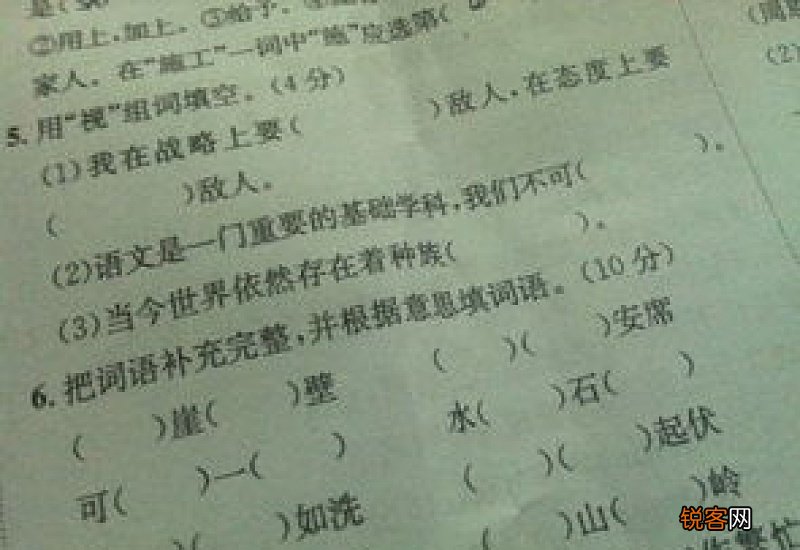 ②用上,加上。③给予。
家人。在“施工”一词中“施”应选第(
5.用“视”组词填空。(4分)
(1)我在战略上要( )敌人,在态度上要
( )敌人。
(2)语文是一门重要的基础学科,我们不可( )。
(3)当今世界依然存在着种族( )。
6.把词语补充完整,并根据意思填词语。(10分)
( )崖( )壁 ( )( )安席
可( )一( ) 水( )石( )
( )如洗 ( )( )起伏
( )山( )岭
(2)
锐客网